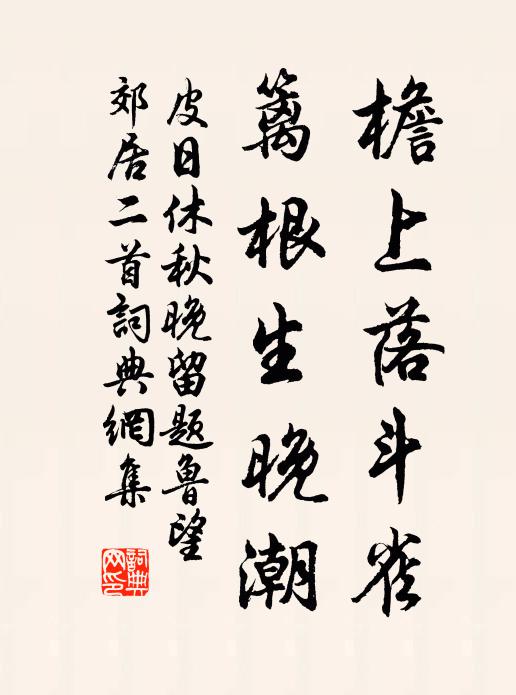 檐上落斗雀
篱根生晚潮
皮日休秋晚留題魯望
郊居二首詞典網集
詞典
网印